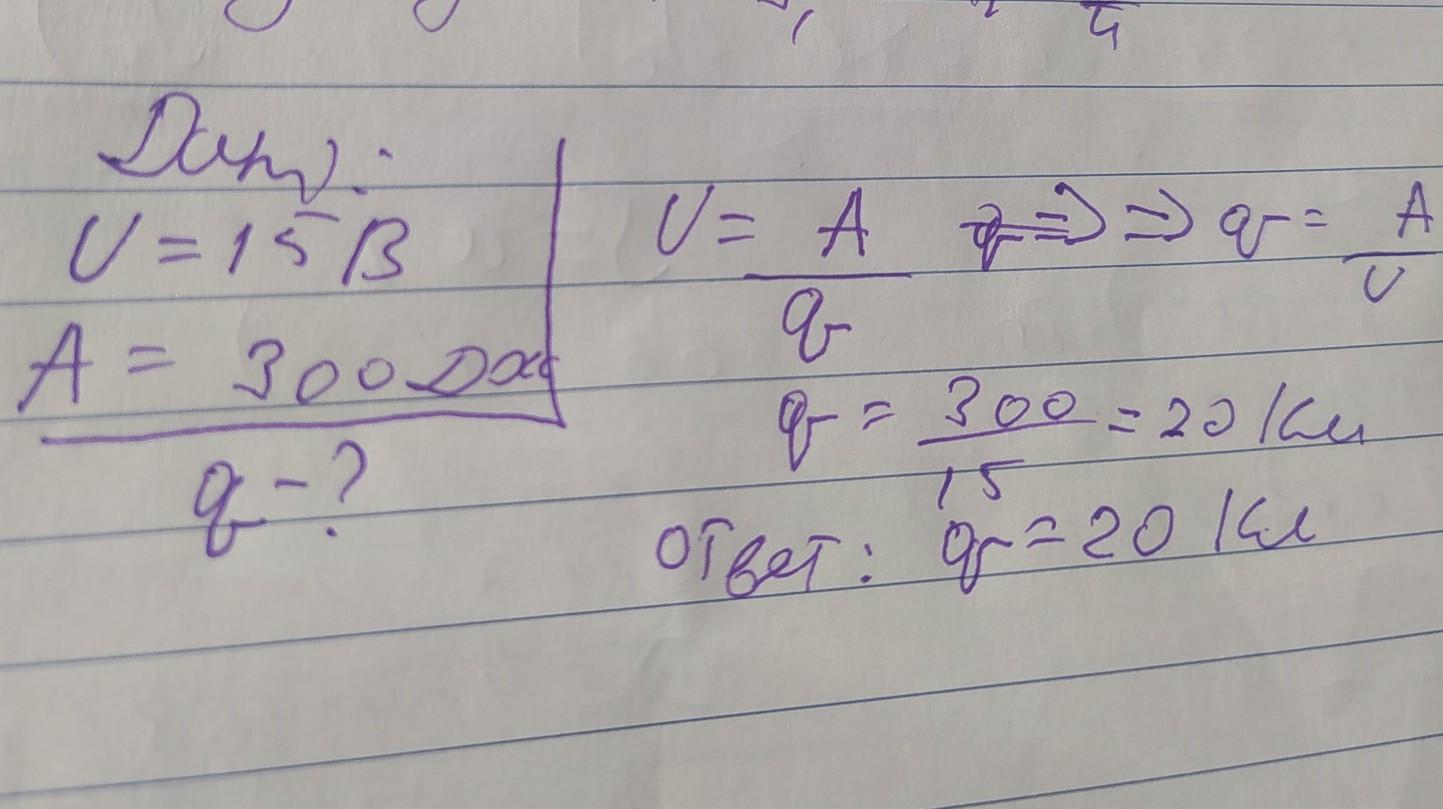 Дано:
U = 15 В
A = 300 Дж
q - ?
U = A/q => q = A/U
q = 300/15 = 20 Кл
Ответ: q = 20 Кл